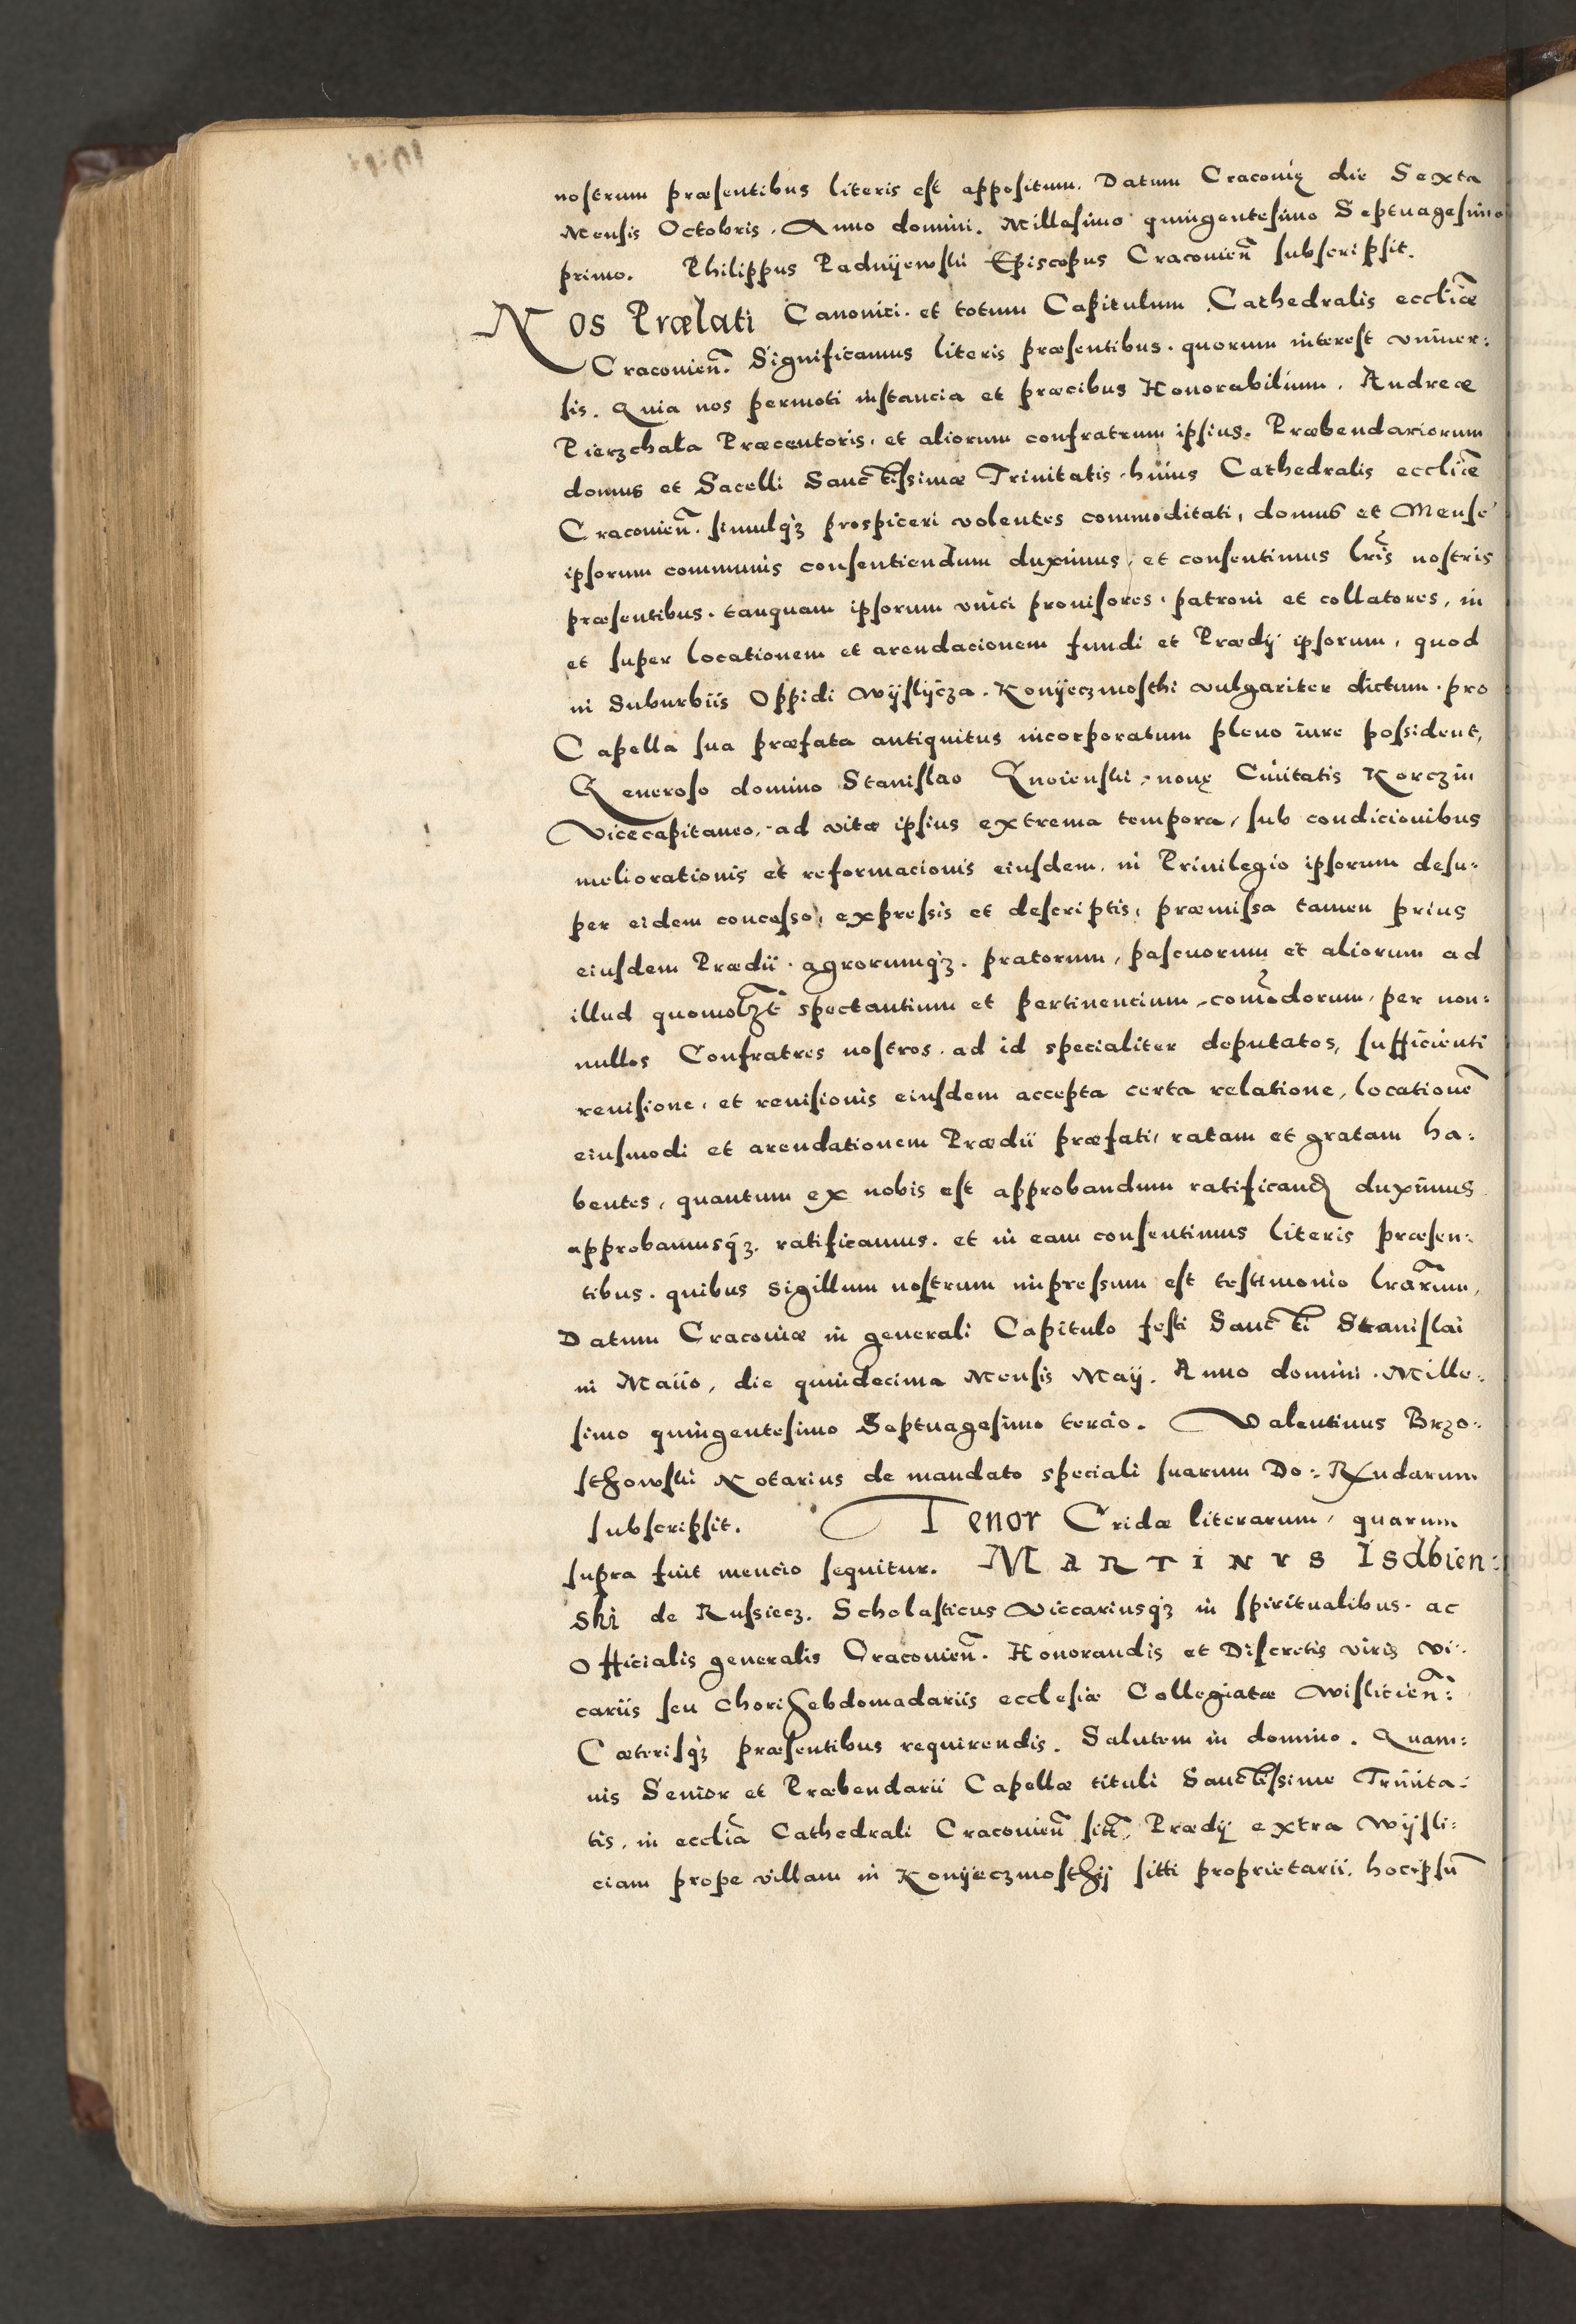 nostrum præsentibus literis est appositum. Datum Cracovię die Sexta
Mensis Octobris. Anno domini. Millesimo quingentesimo Septuagesimo
primo. Philippus Padnijewski Episcopus Cracovieñ subscripsit.
Nos Prælati Canonici. et totum Capitulum Cathedralis eccliæ
Cracovieñ. Significamus literis præsentibus. quorum interest univer:
sis. Quia nos permoti instancia et præcibus Honorabilium. Andreæ
Pierzchała Præcentoris. et aliorum confratrum ipsius. Præbendariorum
domus et Sacelli Sanctissimæ Trinitatis. huius Cathedralis ecclie
Cracovieñ. simulq3 prospiceri volentes commoditati, domus et Mense
ipsorum communis consentiendum duximus, et consentimus lris nostris
præsentibus. tanquam ipsorum unici provisores. patroni et collatores, in
et super locationem et arendacionem fundi et Prædij ipsorum, quod
in Suburbiis Oppidi Wijslijcza. Konijeczmosthi vulgariter dictum. pro
Capella sua præfata antiquitus incorporatum pleno iure possident,
Generoso domino Stanislao Gnoienski, novę Civitatis Korczin
Vicecapitaneo, ad vitæ ipsius extrema tempora, sub condicionibus
meliorationis et reformacionis eiusdem. in Privilegio ipsorum desu:
per eidem concesso, expressis et descriptis, præmissa tamen prius
eiusdem Prædii. agrorumq3. pratorum, pascuorum et aliorum ad
illud quomolzt spectantium et pertinencium, comodorum, per non:
nullos Confratres nostros. ad id specialiter deputatos, sufficienti
revisione, et revisionis eiusdem accepta certa relatione, locationē
eiusmodi et arendationem Prædii præfati, ratam et gratam ha:
bentes, quantum ex nobis est approbandum ratificand duximus
approbamusq3. ratificamus. et in eam consentimus literis præsen:
tibus. quibus sigillum nostrum impressum est testimonio lrarum,
Datum Cracoviæ in generali Capitulo festi Sancti Stanislai
in Maiio, die quindecima Mensis Maij. Anno domini. Mille:
simo quingentesimo Septuagesimo tercio. Valentinus Brzo:
sthowski Notarius de mandato speciali suarum Do: Rndarum
subscripsit. Tenor Cridæ literarum, quarum
supra fuit mencio sequitur. MARTINVS Isdbien:
ski de Russiecz. Scholasticus Viccariusq3 in spiritualibus. ac
Officialis generalis Cracovieñ. Honorandis et Discretis viris Vi:
cariis seu Chori hebdomadariis ecclesiæ Collegiatæ Wisliciens:
Cæterisq3 præsentibus requirendis. Salutem in domino. Quam:
vis Senior et Præbendarii Capellæ tituli Sanctissime Trinita:
tis, in ecclia Cathedrali Cracovieñ sitæ, Prædij extra Wijsli:
ciam prope villam in Konijeczmosthij sitti proprietarii. hocipsū